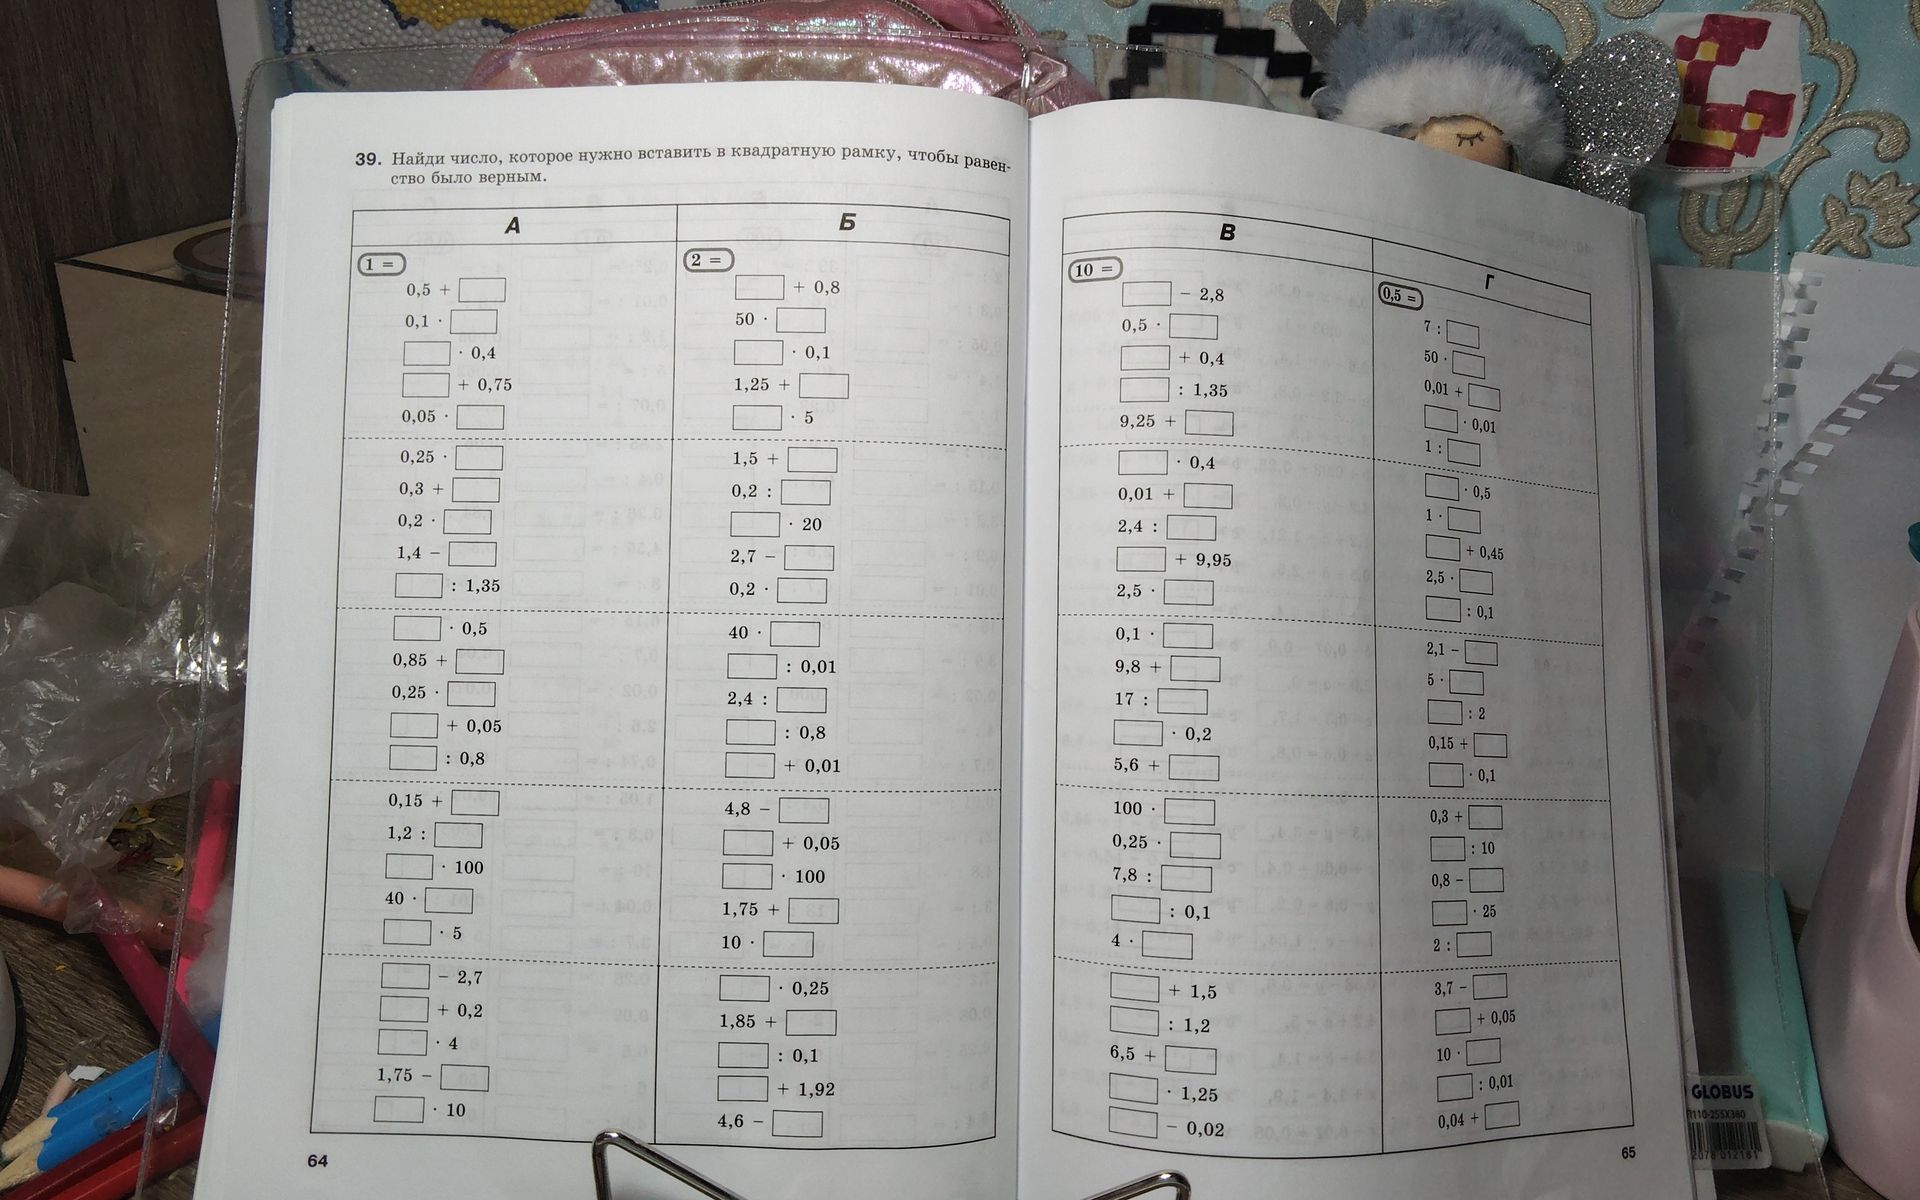 39. Найди число, которое нужно вставить в квадратную рамку, чтобы равен-
ство было верным.
А
1 =
0,5 +
0,1 ·
· 0,4
+ 0,75
0,05 ·
0,25 ·
0,3 +
0,2 ·
1,4 −
: 1,35
· 0,5
0,85 +
0,25 ·
+ 0,05
: 0,8
0,15 +
1,2 :
· 100
40 ·
· 5
− 2,7
+ 0,2
· 4
1,75 −
· 10
Б
2 =
+ 0,8
50 ·
· 0,1
1,25 +
· 5
1,5 +
0,2 :
· 20
2,7 −
0,2 ·
40 ·
: 0,01
2,4 :
: 0,8
+ 0,01
4,8 −
+ 0,05
· 100
1,75 +
10 ·
· 0,25
1,85 +
: 0,1
+ 1,92
4,6 −
64
В
10 =
− 2,8
0,5 ·
+ 0,4
: 1,35
9,25 +
· 0,4
0,01 +
2,4 :
+ 9,95
2,5 ·
0,1 ·
9,8 +
17 :
· 0,2
5,6 +
100 ·
0,25 ·
7,8 :
: 0,1
4 ·
+ 1,5
: 1,2
6,5 +
· 1,25
− 0,02
Г
0,5 =
7 :
50 ·
0,01 +
· 0,01
1 :
· 0,5
1 ·
+ 0,45
2,5 ·
: 0,1
2,1 −
5 ·
: 2
0,15 +
· 0,1
0,3 +
: 10
0,8 −
· 25
2 :
3,7 −
+ 0,05
10 ·
: 0,01
0,04 +
65
GLOBUS